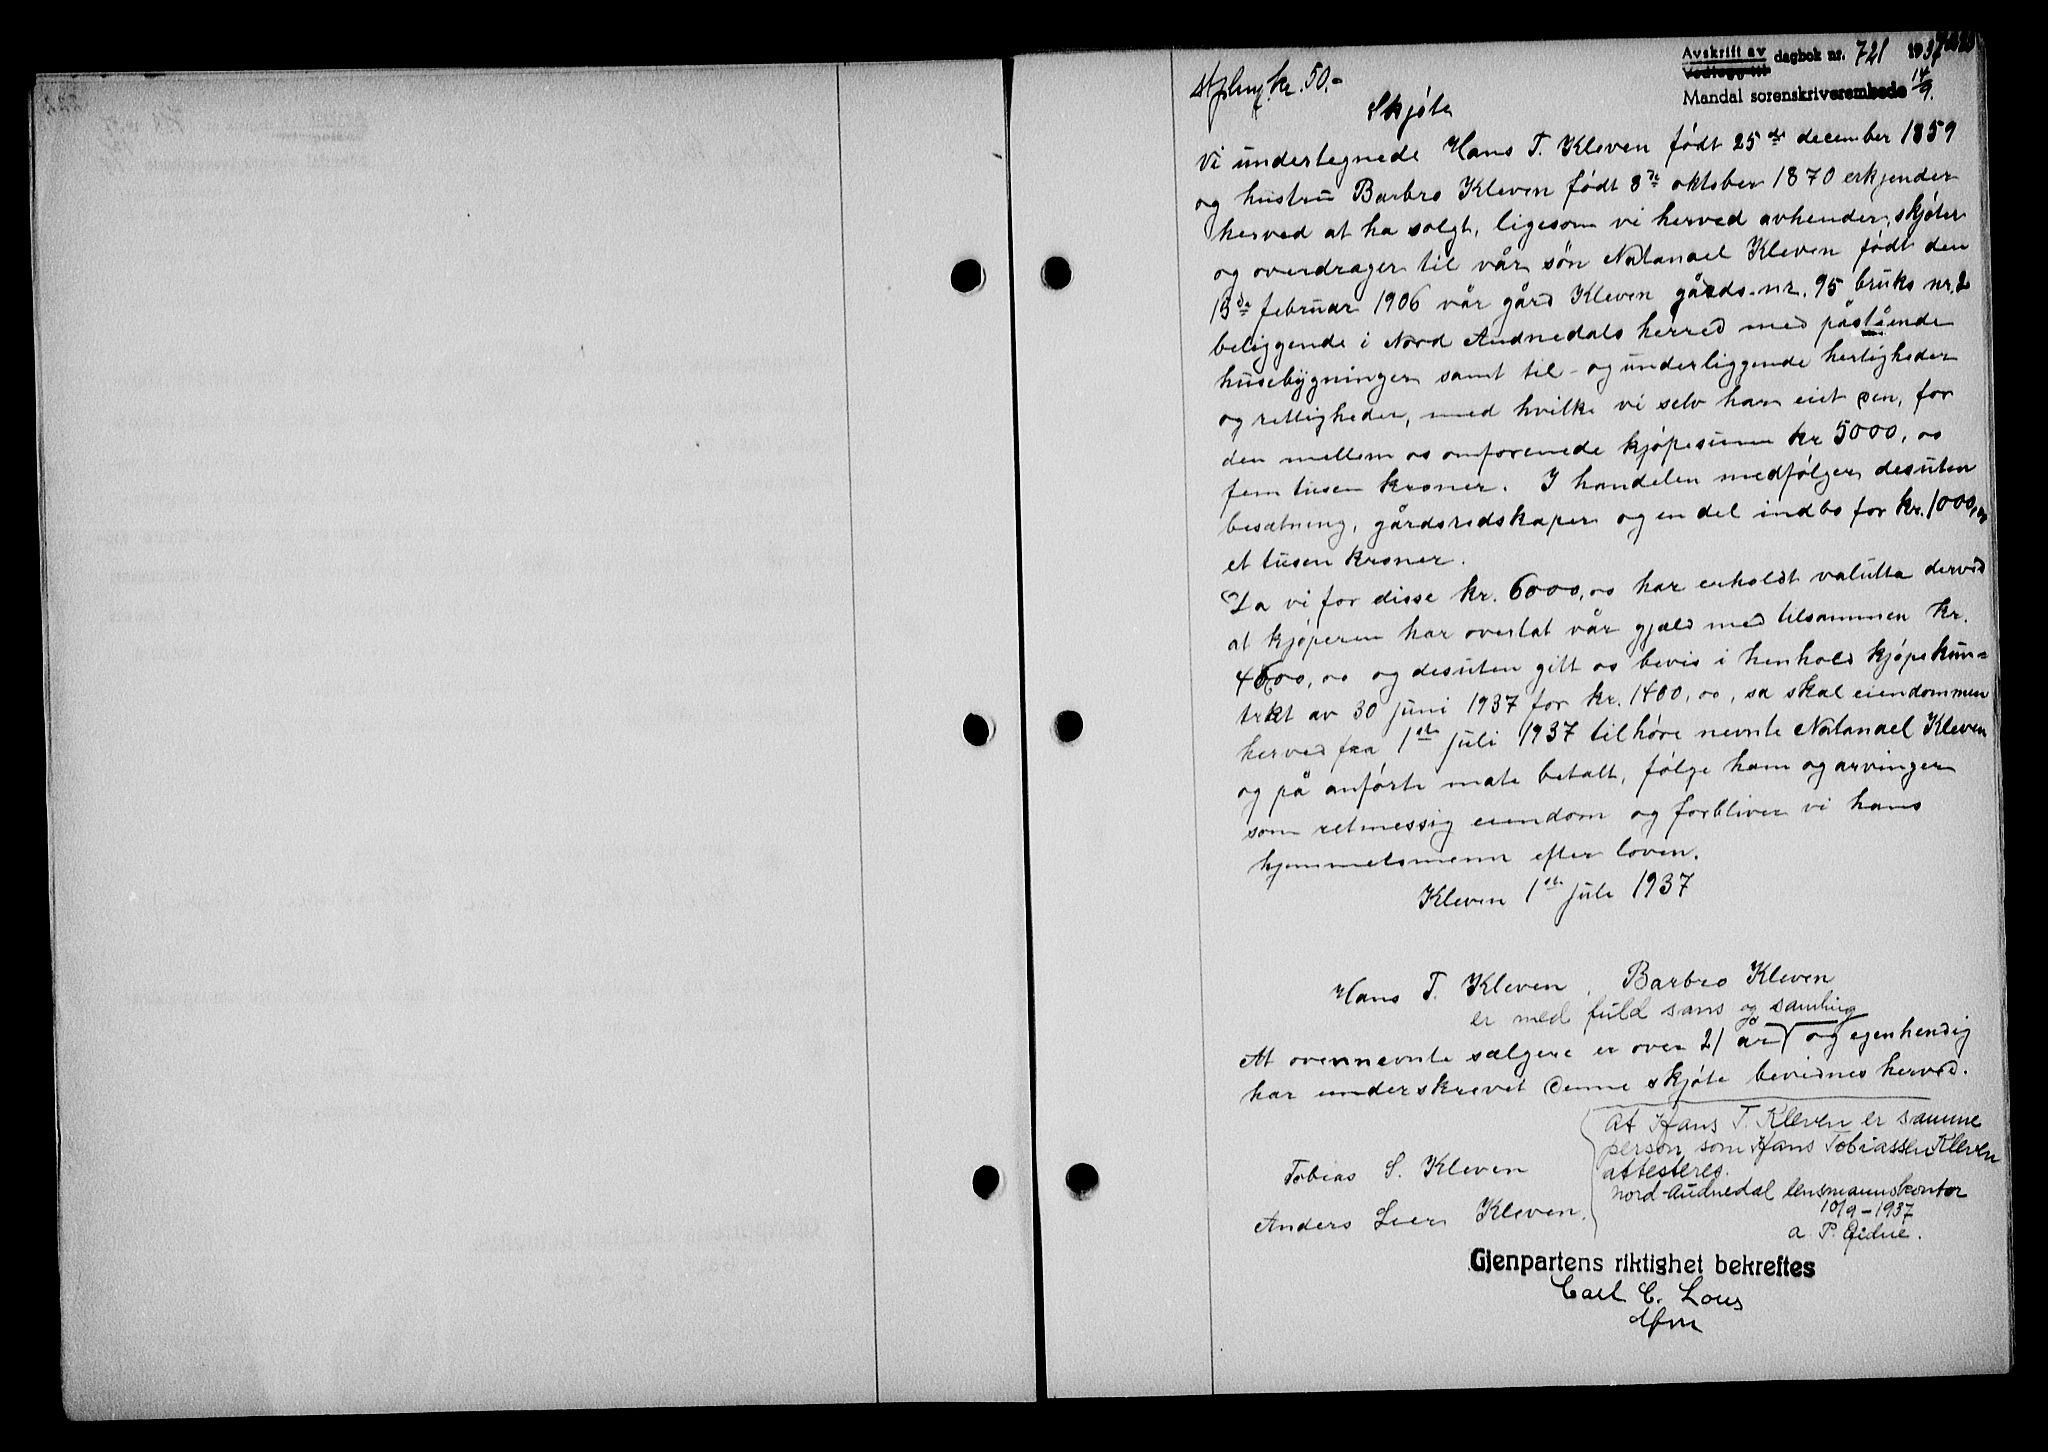 Avskrift av
Vedlegg til dagbok nr. 721 1937
Mandal sorenskriverembede 14/9.
kr. 50.-
Skjöte
Vi undertegnede Hans T. Kleven födt 25de december 1859
og hustru Barbro Kleven födt 8de oktober 1870 erkjender
herved at ha solgt, ligesom vi herved avhender, skjöter
og overdrager til vår sön Natanael Kleven födt den
13de februar 1906 vår gård Kleven gårds-nr. 95 bruks nr. 2
beliggende i Nord Audnedals herred med påstående
husebygninger samt til- og underliggende herligheder
og rettigheder, med hvilke vi selv har eiet den, for
den mellem os omforenede kjöpesum kr 5000,oo
fem tusen kroner. I handelen medfölger desuten
besætning, gårdsredskaper og en del indbo for kr. 1000,oo
et tusen kroner.
Da vi for disse kr. 6000,oo har erholdt valutta derved
at kjöperen har overtat vår gjæld med tilsammen kr.
4600,oo og desuten gitt os bevis i henhold kjöpekun=
trkt av 30 juni 1937 for kr. 1400,oo, sa skal eiendommen
herved fra 1ste juli 1937 tilhöre nevnte Natanael Kleven
og på anförte mate betalt, fölge ham og arvinger
som retmessig eiendom og forbliver vi hans
hjemmelsmenn efter loven.
Kleven 1ste juli 1937
Hans T. Kleven, Barbro Kleven
er med fuld sans og samling
At ovennevnte sælgere er over 21 år og egenhendig
har underskrevet denne skjöte bevidnes herved.
At Hans T. Kleven er samme
person som Hans Tobiassen Kleven
attesteres.
Nord-Audnedal lensmannskontor
10/9-1937
a P. Gidne.
Tobias S. Kleven
Anders Kleven.
Gjenpartens riktighet bekreftes
Carl C. Lous